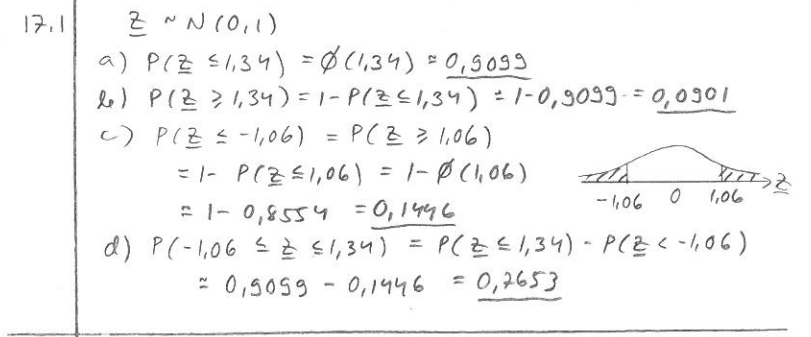 17.1 Z ~ N(0,1)
a) P(Z ≤ 1,34) = Ø(1,34) ≈ 0,9099
b) P(Z ≥ 1,34) = 1 - P(Z ≤ 1,34) ≈ 1 - 0,9099 = 0,0901
c) P(Z ≤ -1,06) = P(Z ≥ 1,06)
= 1 - P(Z ≤ 1,06) = 1 - Ø(1,06)
≈ 1 - 0,8554 = 0,1446
-1,06 0 1,06 Z
d) P(-1,06 ≤ Z ≤ 1,34) = P(Z ≤ 1,34) - P(Z < -1,06)
≈ 0,9099 - 0,1446 = 0,7653